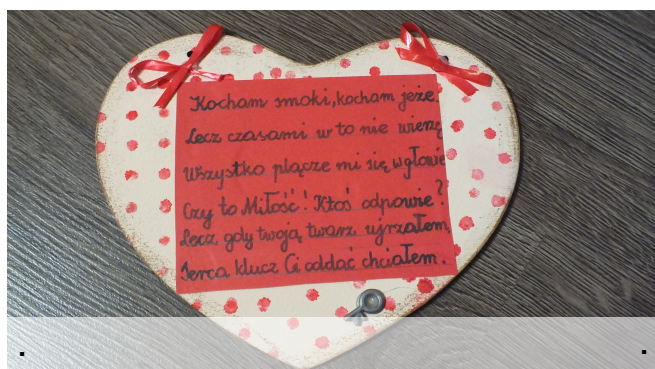 Kocham smoki, kocham jeże.
Lecz czasami w to nie wierzę
Wszystko plącze mi się w głowie
Czy to Miłość! Ktoś odpowie?
Lecz gdy twoją twarz ujrzałem,
Serca klucz Ci oddać chciałem.